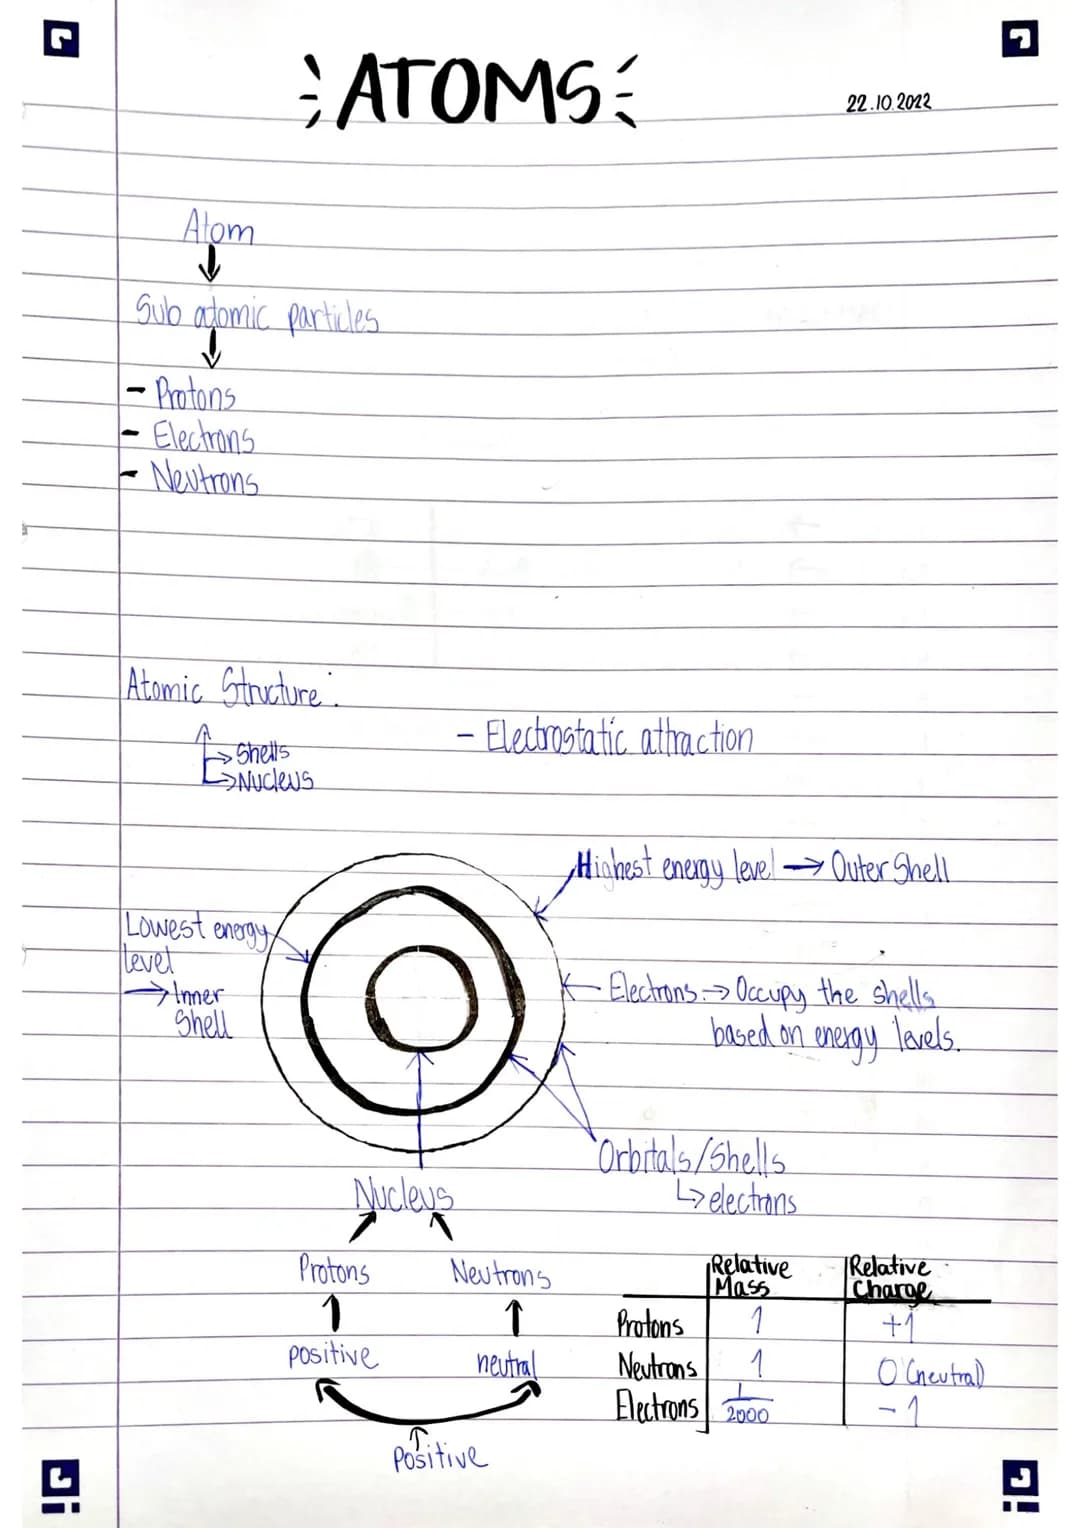 ATOMS
22.10.2022
Atom
Sub atomic particles
- Protons
- Electrons
- Neutrons
Atomic Structure:
→ Shells
→ Nucleus
- Electrostatic attraction
Highest energy level → Outer Shell
Lowest energy
level
→ Inner
Shell
Electrons → Occupy the shells
based on energy levels.
Orbitals/Shells
↳ electrons
Nucleus
Protons
Neutrons
positive
neutral
Positive
Relative Mass
Relative Charge
Protons 1 +1
Neutrons 1 0 (neutral)
Electrons 1/2000 -1